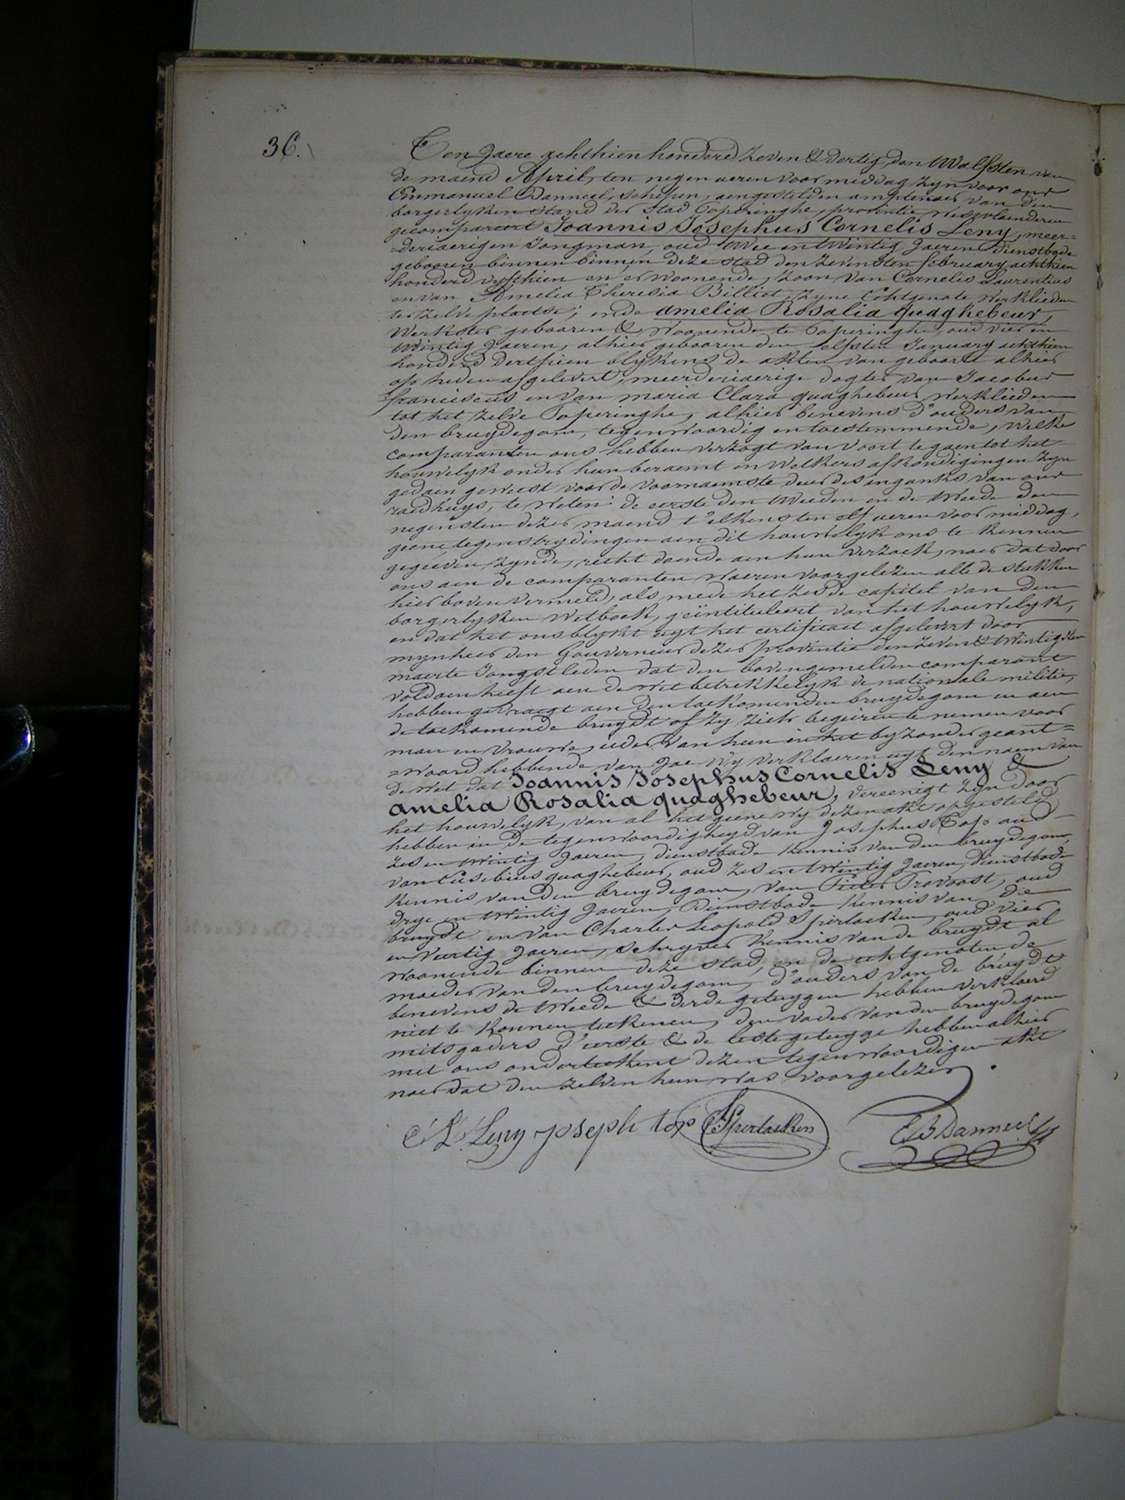 36.
Ten Jaere achthien honderd Zeven & dertig den twalfsten van
de maend April, ten negen ueren voormiddag zyn voor ons
Emmanuel Danneel, Schepen, aengestelden amptenaer van den
borgerlyken stand der Stad Poperinghe, provintie Westvlaenderen
gecompareert Joannis Josephus Cornelis Leny, meer-
derjaerigen Jongman, oud twee en twintig Jaeren, dienstbode
gebooren binnen binnen deze stad den zevensten february achthien
honderd vyfthien en er woonende, zoon van Cornelis Laurentius
en van Amelia Theresia Billiet zyne Echtgenote werklieden
ter zelve plaetse; ende amelia Rosalia quaghebeur,
werkster gebooren & woonende te Poperinghe, oud vier en
twintig Jaeren, alhier gebooren den elfsten January achthien
honderd derthien blykens de akten van geboorte alhier
op heden afgelevert, meerderjaerige dogter van Jacobus
franciscus en van maria Clara quaghebeur werklieden
tot het zelve Poperinghe, alhier benevens d'ouders van
den bruydegom, tegenwoordig en toestemmende, welke
comparanten ons hebben verzogt van voort te gaen tot het
houwelyk onder hun beraemt en welkers afkondigingen zyn
gedaen geweest voor de voornaemste deur des inganks van ons
raedhuys, te weten: de eerste den tweeden en de tweede den
negensten dezer maend t'elkens ten elf ueren voormiddag,
geene tegenstrydingen aen dit houwelyk ons te kennen
gegeeven zynde, recht doende aen hun verzoek, naer dat door
ons aen de comparanten waeren voorgelezen alle de stukken
hier boven vermeld, als mede het zesde capitel van den
borgerlyken Wetboek, geïntituleert van het houwelyk,
en dat het ons blykt uyt het certificaet afgelevert door
mynheer den Gouverneur dezer provintie den zeven & twintigsten
maerte Jongstleden dat den bovengemelden comparant
voldaen heeft aen de wet betrekkelyk de nationale militie,
hebben gevraegt aen den toekomenden bruydegom en aen
de toekomende bruydt of zy zich begeiren te nemen voor
man en vrouwe, ieder van hun in het byzonder geant-
woord hebbende van Jae, Wy verklaeren uyt den naem van
de wet dat Joannis Josephus Cornelis Leny &
amelia Rosalia quaghebeur, vereenigt zyn door
het houwelyk, van al het geene wy dezen akt opgesteld
hebben in de tegenwoordigheyd van Josephus Top oud
zes en twintig Jaeren, dienstbode kennis van den bruydegom,
van Eusebius quaghebeur, oud zes en twintig Jaeren, dienstbode
kennis van den bruydegom, van Pieter Provoost, oud
drye en twintig Jaeren, dienstbode kennis van die
bruydt en van Charles Leopold Sperlaeken, oud vier
en veertig Jaeren, schryver kennis van de bruydt al
woonende binnen deze stad, en de echtgenoten de
moeder van den bruydegom, d'ouders van de bruydt
benevens de tweede & derde getuygen hebben verklaerd
niet te konnen teekenen, den vader van den bruydegom
mitsgaders d'eerste & de leste getuyge hebben alhier
met ons onderteekent dezen tegenwoordigen akt
naer dat den zelven hun was voorgelezen.
C L Leny Joseph top Sperlaeken E B Danneel